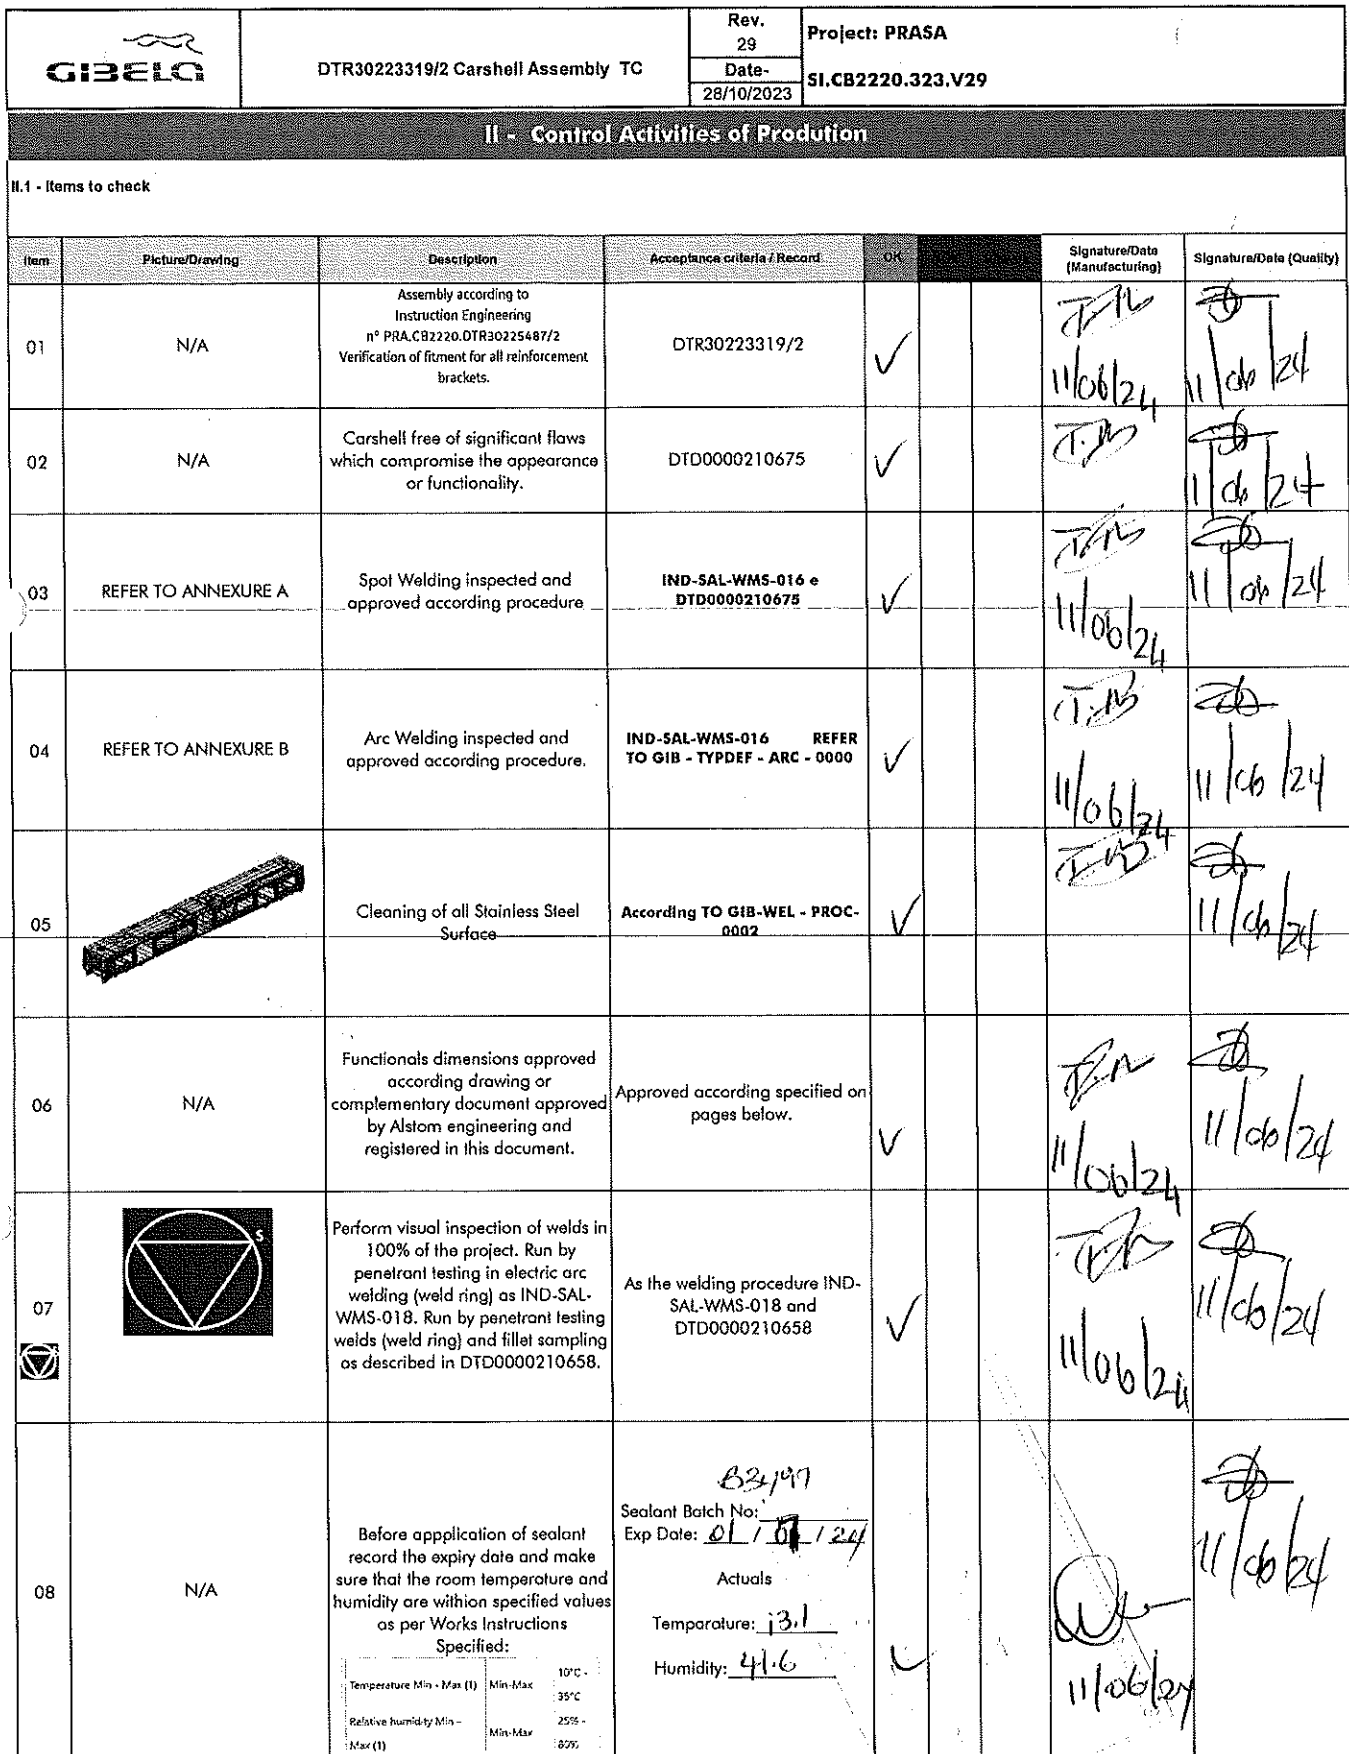 GIBELA
DTR30223319/2 Carshell Assembly TC
Rev.
29
Date-
28/10/2023
Project: PRASA
SI.CB2220.323.V29
II - Control Activities of Prodution
II.1 - Items to check
Item
Picture/Drawing
Description
Acceptance criteria / Record
OK
Signature/Date
(Manufacturing)
Signature/Date (Quality)
01
N/A
Assembly according to
Instruction Engineering
nº PRA.CB2220.DTR30225487/2
Verification of fitment for all reinforcement
brackets.
DTR30223319/2
11/06/24
11/06/24
02
N/A
Carshell free of significant flaws
which compromise the appearance
or functionality.
DTD0000210675
11/06/24
03
REFER TO ANNEXURE A
Spot Welding inspected and
approved according procedure
IND-SAL-WMS-016 e
DTD0000210675
11/06/24
11/06/24
04
REFER TO ANNEXURE B
Arc Welding inspected and
approved according procedure.
IND-SAL-WMS-016 REFER
TO GIB - TYPDEF - ARC - 0000
11/06/24
11/06/24
05
Cleaning of all Stainless Steel
Surface
According TO GIB-WEL - PROC-
0002
11/06/24
06
N/A
Functionals dimensions approved
according drawing or
complementary document approved
by Alstom engineering and
registered in this document.
Approved according specified on
pages below.
11/06/24
11/06/24
07
S
Perform visual inspection of welds in
100% of the project. Run by
penetrant testing in electric arc
welding (weld ring) as IND-SAL-
WMS-018. Run by penetrant testing
welds (weld ring) and fillet sampling
as described in DTD0000210658.
As the welding procedure IND-
SAL-WMS-018 and
DTD0000210658
11/06/24
11/06/24
08
N/A
Before appplication of sealant
record the expiry date and make
sure that the room temperature and
humidity are withion specified values
as per Works Instructions
Specified:
Temperature Min - Max (1) Min-Max 10°C -
35°C
Relative humidity Min -
Max (1) Min-Max 25% -
80%
Sealant Batch No:
Exp Date: 01 / 07 / 24
Actuals
Temparature: 13.1
Humidity: 41.6
11/06/24
11/06/24